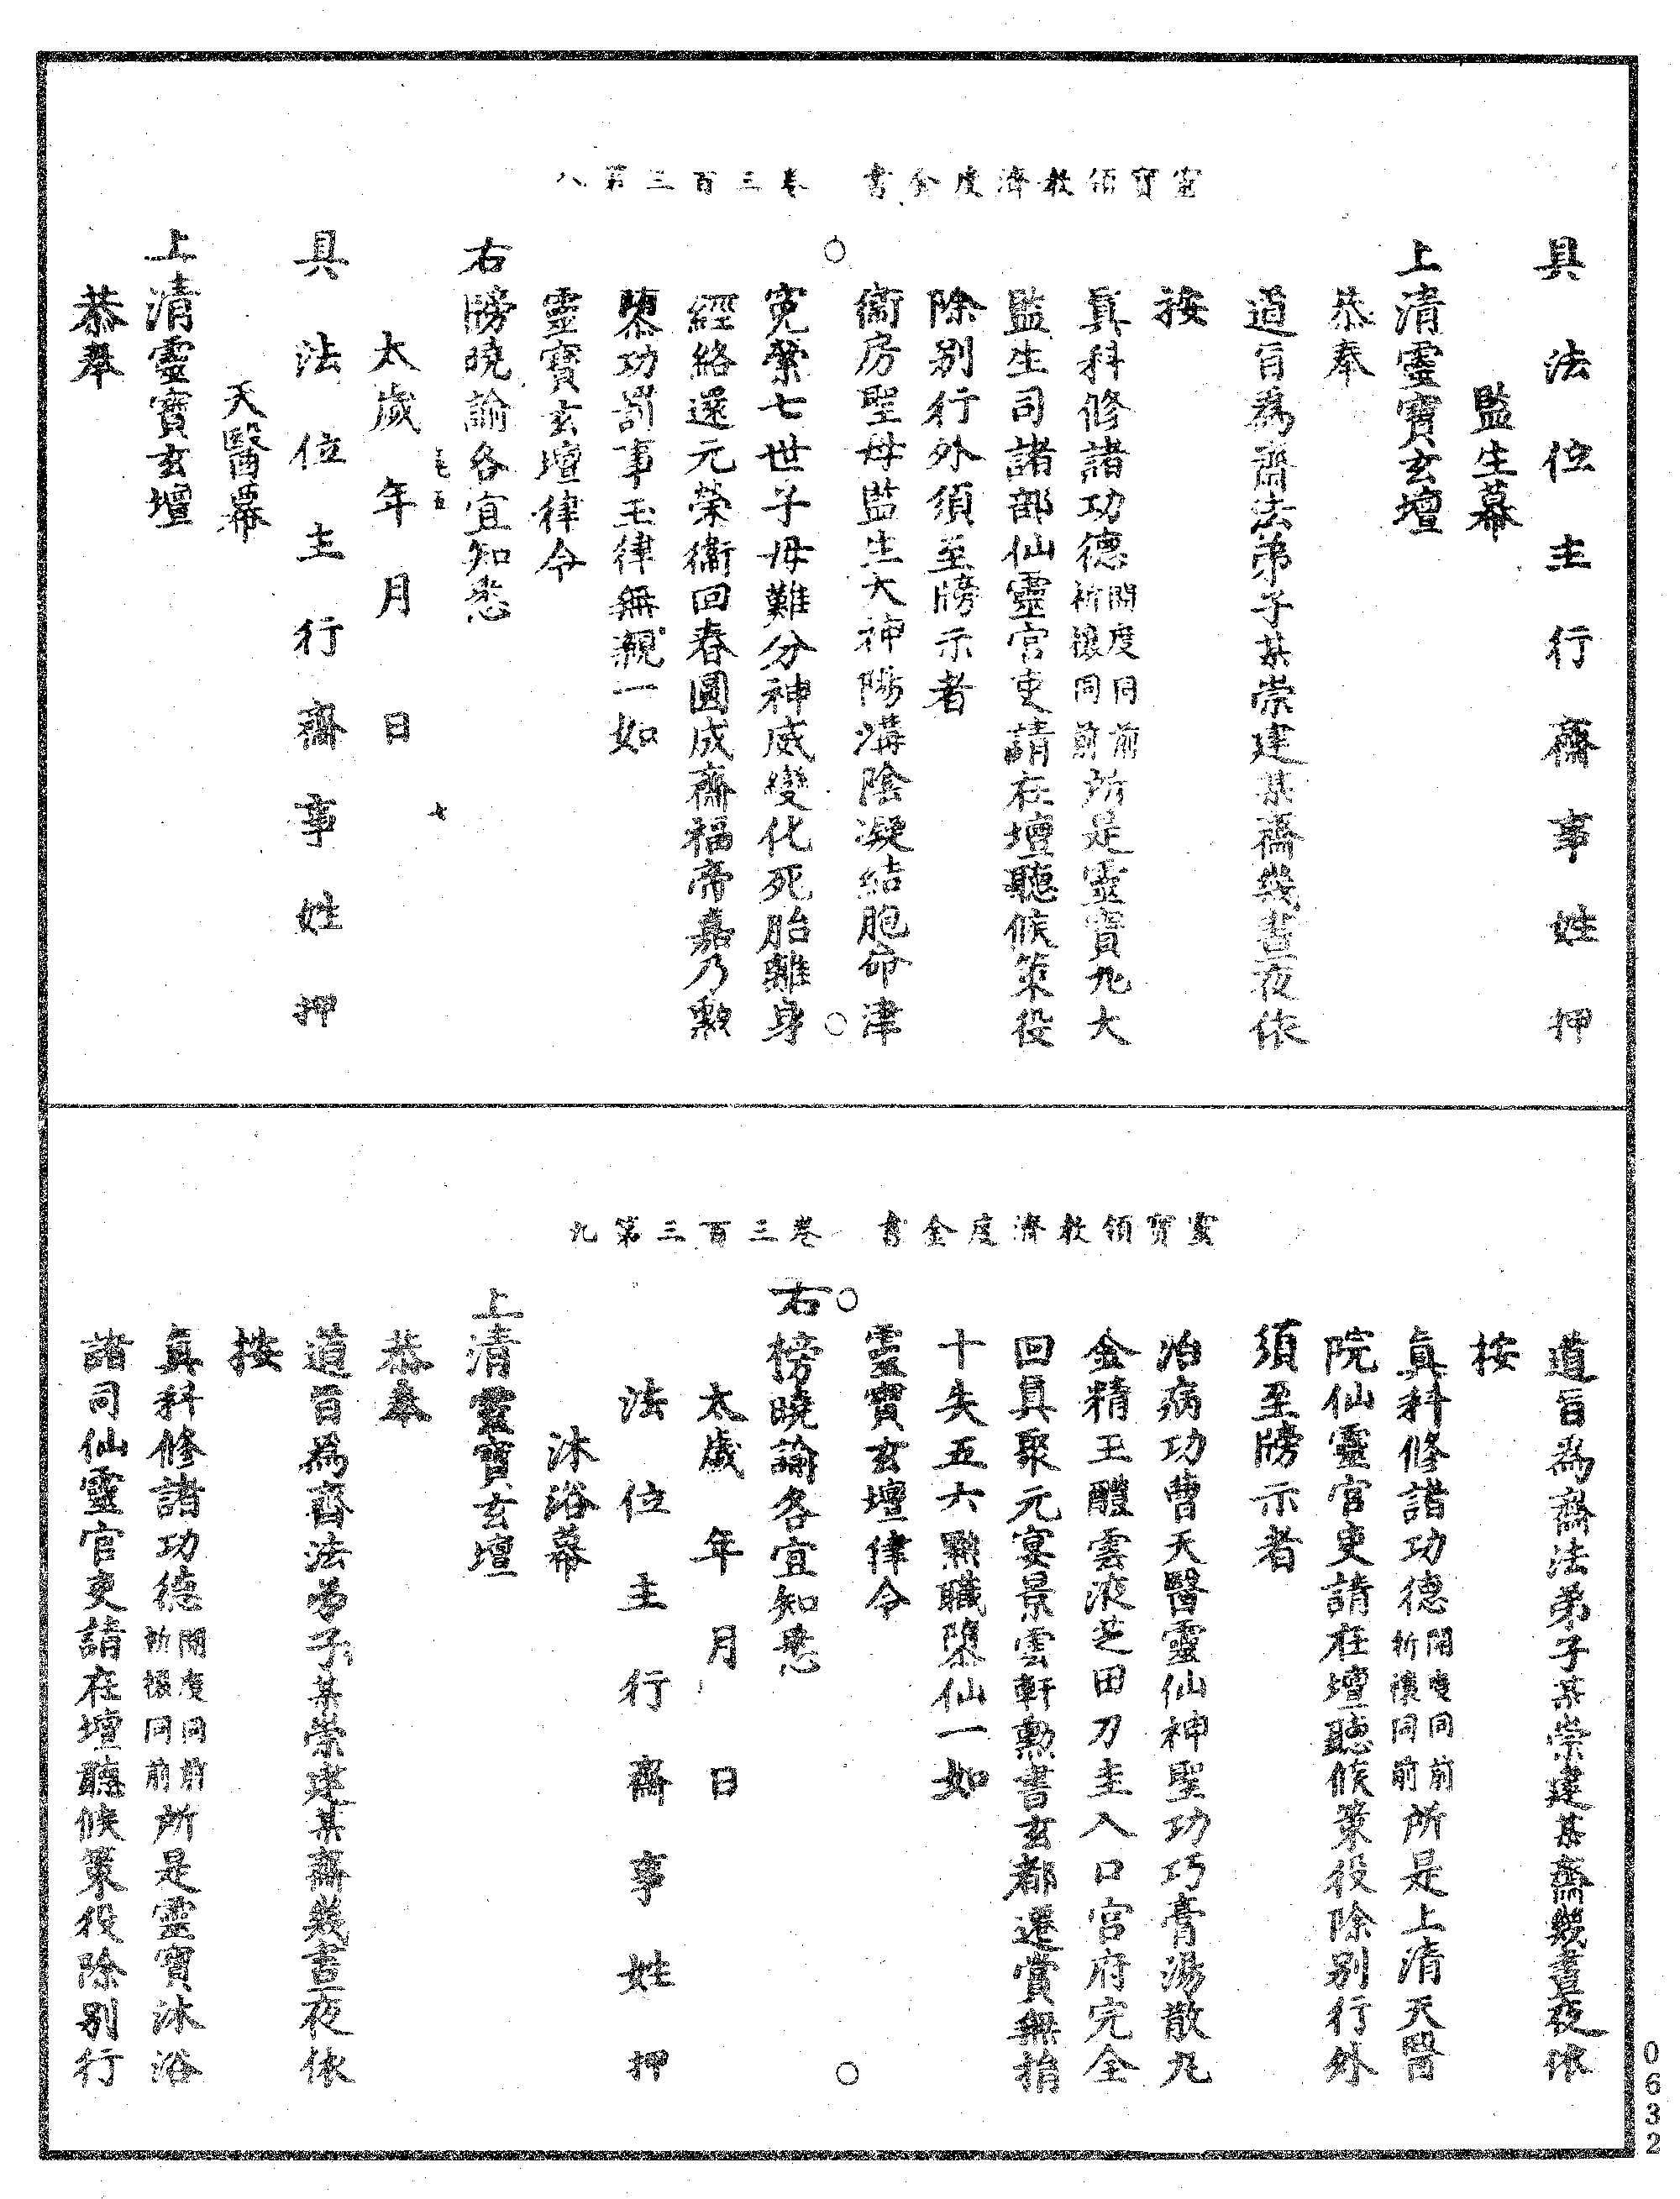 靈寶領教濟度金書　卷三百三　第八
具法位主行齋事姓押
監生幕
上清靈寶玄壇
恭奉
道旨為齋法弟子某崇建某齋幾晝夜依
按
真科修諸功德開度同前祈禳同前所是靈寶九大
監生司諸部仙靈官吏請在壇聽候策役
除別行外須至牓示者
衞房聖母監生大神陽溝陰凝結胞命津
寃縈七世子母難分神威變化死胎離身
經絡還元榮衞回春圓成齋福帝嘉乃勳
隳功罰事玉律無親一如
靈寶玄壇律令
右牓曉諭各宜知悉
太歲　年　月　日
七
具法位主行齋事姓押
天醫幕
上清靈寶玄壇
恭奉
靈寶領教濟度金書　卷三百三　第九
道旨為齋法弟子某崇建某齋幾晝夜依
按
真科修諸功德開度同前祈禳同前所是上清天醫
院仙靈官吏請在壇聽候策役除別行外
須至牓示者
治病功曹天醫靈仙神聖功巧膏湯散丸
金精玉醴雲液芝田刀圭入口宮府完全
回真聚元宴景雲軒勳書玄都遷賞無捐
十失五六黜職隳仙一如
靈寶玄壇律令
右榜曉諭各宜知悉
太歲　年　月　日
法位主行齋事姓押
沐浴幕
上清靈寶玄壇
恭奉
道旨為齋法弟子某崇建某齋幾晝夜依
按
真科修諸功德開度同前祈禳同前所是靈寶沐浴
諸司仙靈官吏請在壇聽候策役除別行
0632